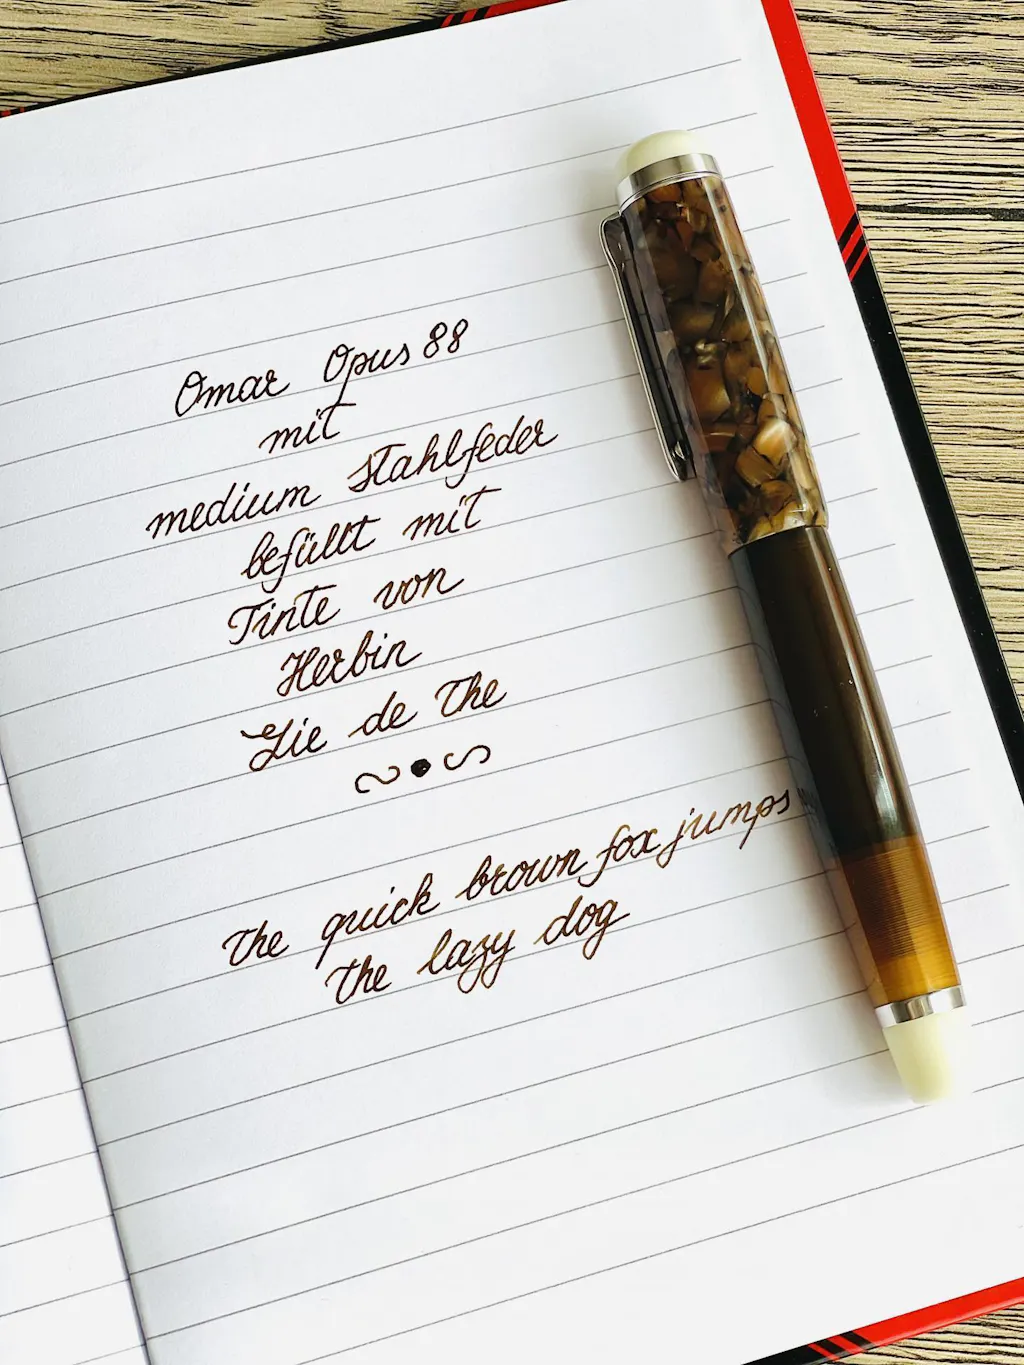 Omar Opus 88
mit
medium Stahlfeder
befüllt mit
Tinte von
Herbin
Lie de The
the quick brown fox jumps
the lazy dog